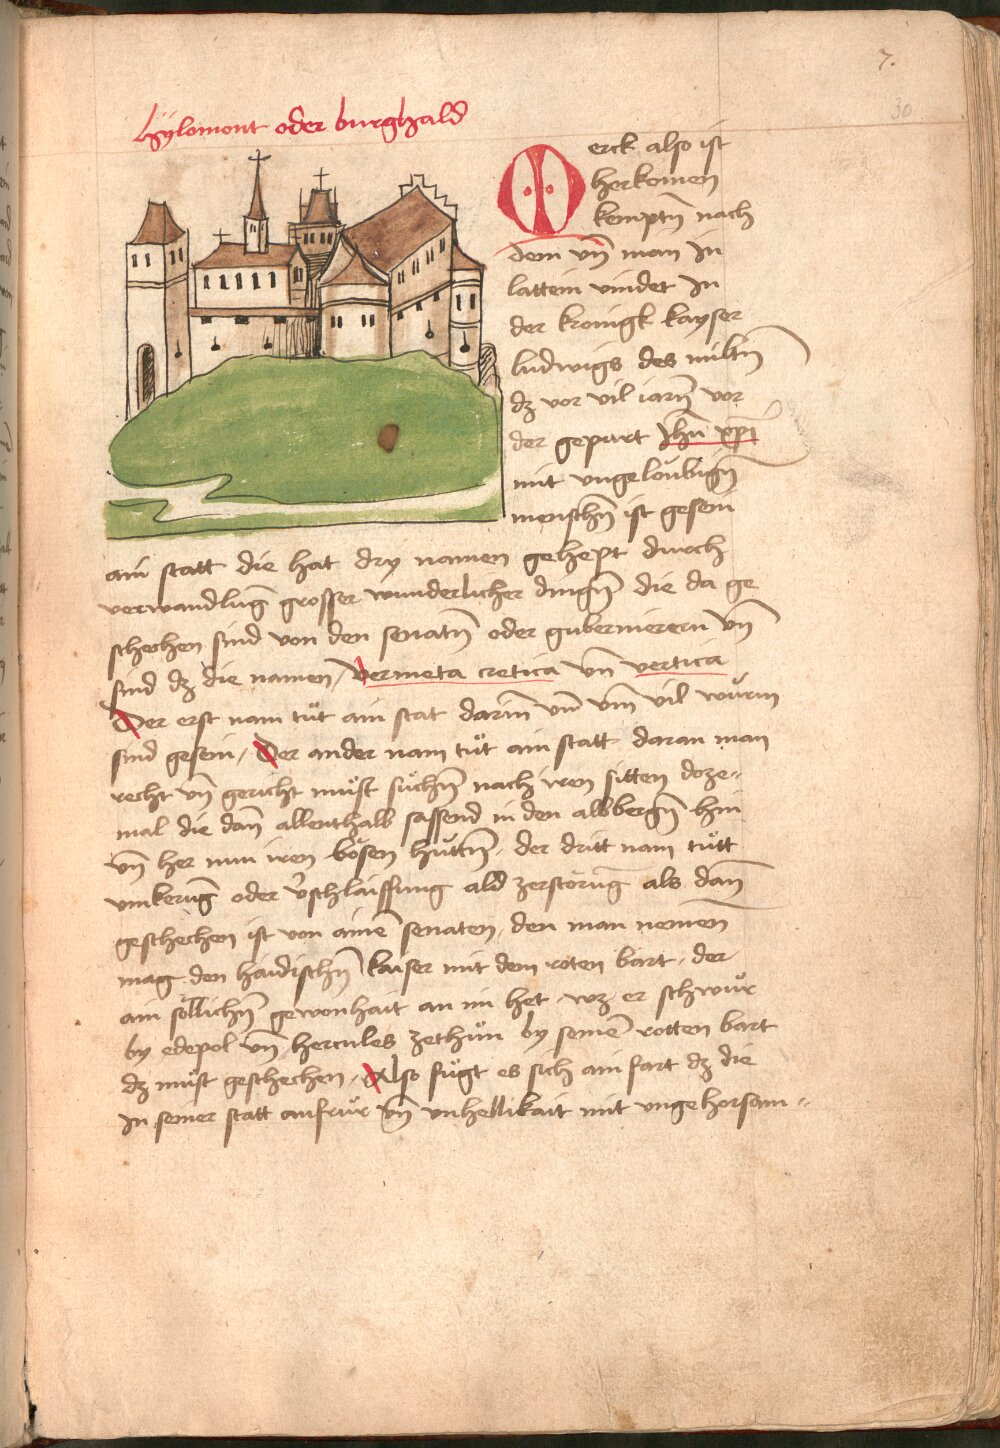 7.
30
hÿlomont oder burghald
Merck also ist
herkomen
kemptn̄ nach
dem vn̄ man in
lattein vindet In
der kronigk kayser
ludwigs des miltn̄
dz vor vil iarn̄ vor
der gepurt Jhū xp̄i
mit vngelöubign̄
menschn̄ ist gesein
ain statt die hat dry namen gehept durch
verwandlūg grosser wunderlicher dingn̄ die da ge
schechen sind von den senatn̄ oder gubernierern vn̄
sind dz die namen / Vermeta cretica vn̄ vertica
Der erst nam tu̍t ain stat darin̄ vn̄ vm̄ vil wu̍rm
sind gesein / Der ander nam tu̍t ain statt daran man
recht vn̄ gericht mu̍st su̍chn̄ nach iren sitten doze-
mal die dan̄ allenthalb sassend in den albbergn̄ hin
vn̄ her inn iren bösen hüttn̄ / der dritt nam tu̍tt
vmkerūg oder v̄schlaissung ald zerstörūg als dan̄
geschechen ist von ainē senaten / den man nemen̄
mag den haidischn̄ kaiser mit dem roten bart / der
ain söllichn̄ gewonhait an im het / wz er schwu̍r
by edepol vn̄ hercules zethu̍n by seinē rotten bart
dz mu̍st geschechen / Also fu̍gt es sich ain fart dz die
In seiner statt aufru̍r vn̄ vnhellikait mit vngehorsam-